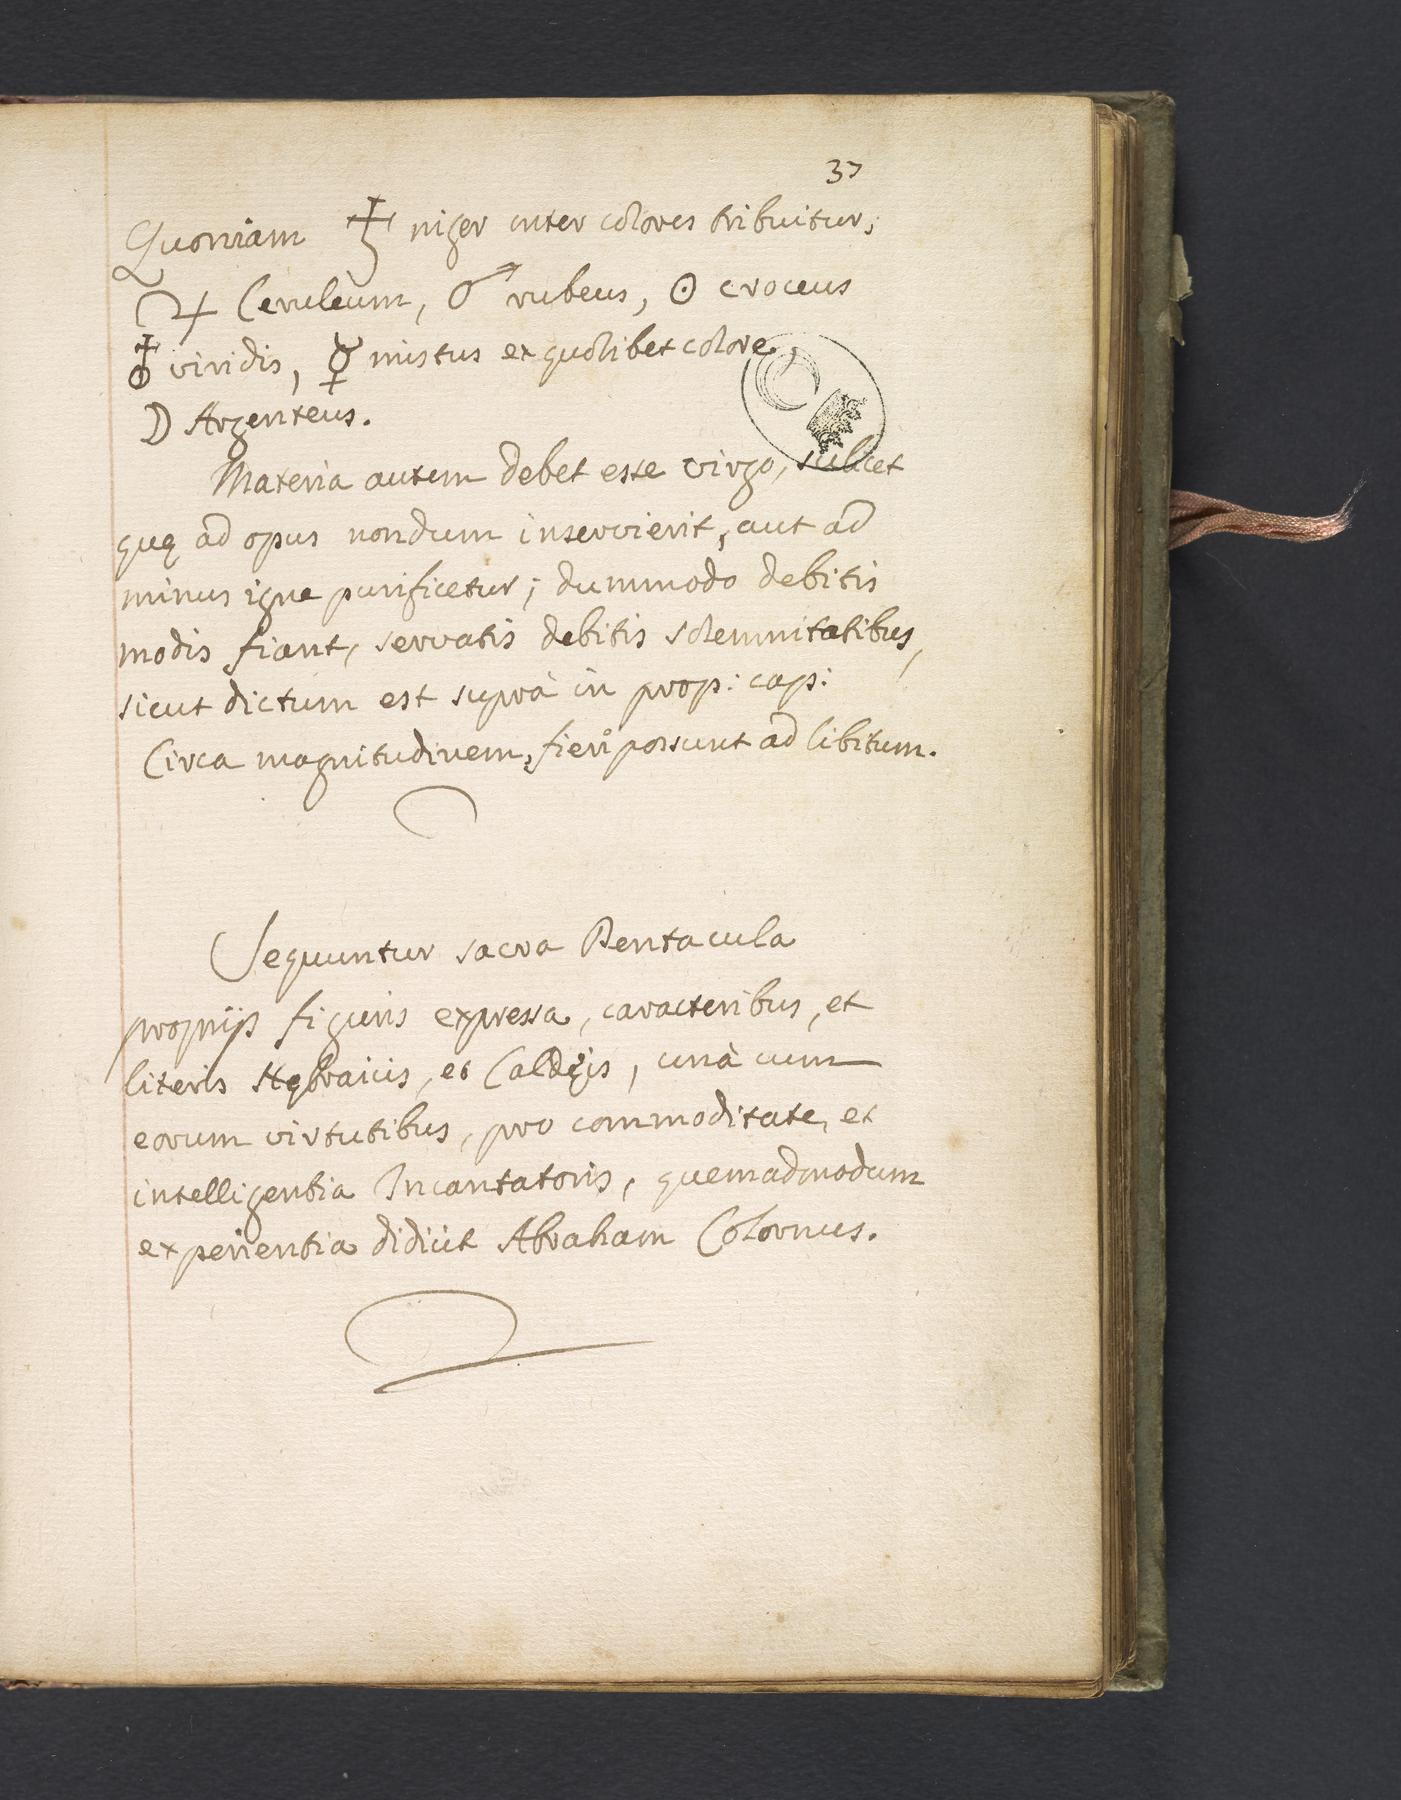 37
Quoniam ♄ niger inter colores tribuitur;
♃ Ceruleum, ♂ rubeus, ☉ croceus
♀ viridis, ☿ mistus ex quolibet colore,
☽ Argenteus.
Materia autem debet esse virgo, scilicet
quę ad opus nondum inservierit, aut ad
minus igne purificetur; dummodo debitis
modis fiant, servatis debitis solemnitatibus,
sicut dictum est suprà in prop: cap:
Circa magnitudinem, fieri possunt ad libitum.
Sequuntur sacra Pentacula
proprijs figuris expressa, caracteribus, et
literis Hębraicis, et Caldęis, unà cum
eorum virtutibus, pro commoditate, et
intelligentia Incantatoris, quemadmodum
experientia didicit Abraham Colornus.